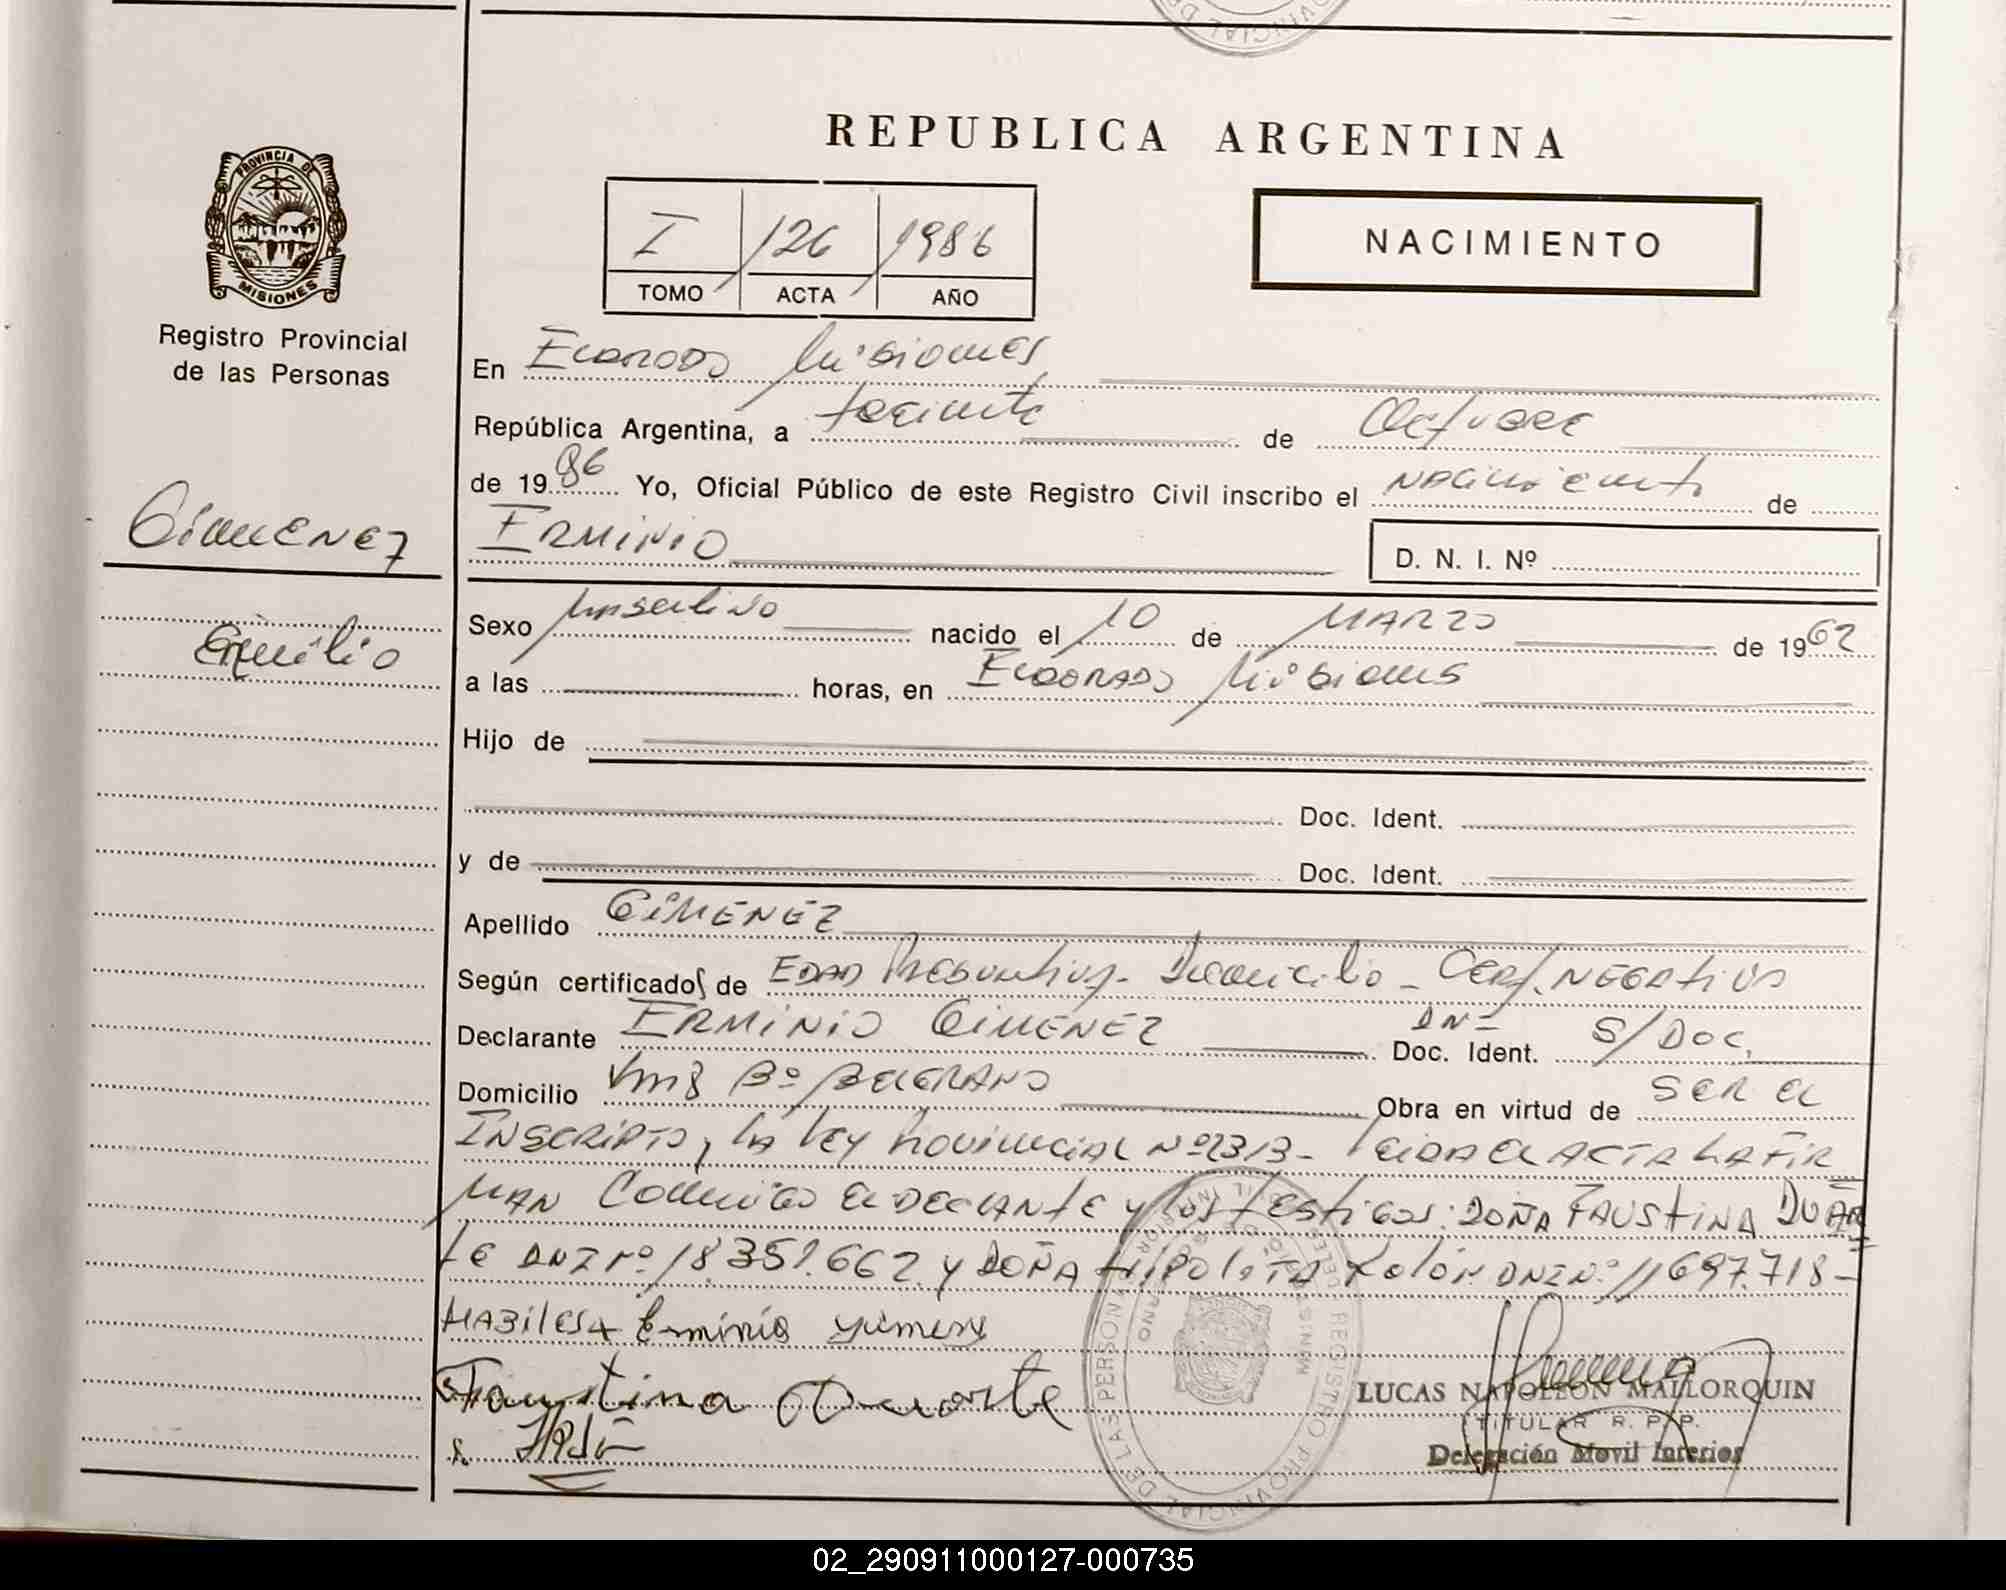 REPUBLICA ARGENTINA
PROVINCIA DE
MISIONES
Registro Provincial
de las Personas
I 126 1986
TOMO ACTA AÑO
NACIMIENTO
En Eldorado Misiones
República Argentina, a treinta de Octubre
de 1986 Yo, Oficial Público de este Registro Civil inscribo el nacimiento de
GIMENEZ
ERMINIO
D. N. I. Nº
Sexo Masculino nacido el 10 de MARZO de 1962
a las horas, en ELDORADO Misiones
Hijo de
Doc. Ident.
y de Doc. Ident.
Apellido GIMENEZ
Según certificados de EDAD Presuntiva - Domicilio - CERT. NEGATIVO
Declarante ERMINIO GIMENEZ Doc. Ident. S/DOC.
Domicilio Km 8 Bº BELGRANO Obra en virtud de SER EL
INSCRIPTO, LA LEY PROVINCIAL Nº 2313 - LEIDA EL ACTA LA FIR
MAN Conmigo EL DECLANTE y los TESTIGOS: DOÑA FAUSTINA DUAR
TE DNI Nº 18.351.662 y DOÑA HIPOLITA DNI Nº 11697.718 -
HABILES
Faustina Duarte
LUCAS NAPOLEON MALLORQUIN
TITULAR R. P. P.
Delegación Movil Interior
REGISTRO PROVINCIAL DE LAS PERSONAS
02_290911000127-000735